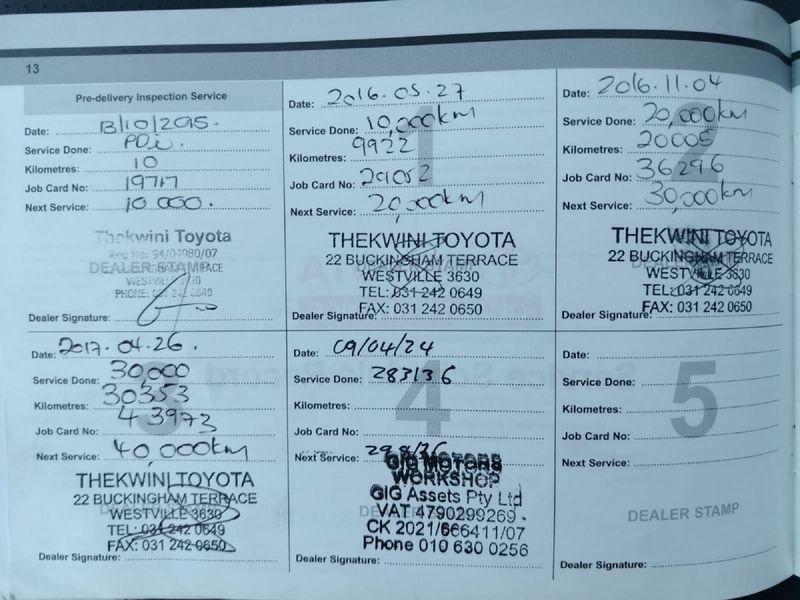 13
Pre-delivery Inspection Service
Date: 13/10/2015.
Service Done: PDI.
Kilometres: 10
Job Card No: 19717
Next Service: 10 000.
Thekwini Toyota
Reg No: 94/04980/07
DEALER STAMP
WESTVILLE 3630
PHONE: 031 242 0649
Dealer Signature:
1
Date: 2016.05.27
Service Done: 10,000km
Kilometres: 9922
Job Card No: 29052
Next Service: 20,000km
THEKWINI TOYOTA
22 BUCKINGHAM TERRACE
WESTVILLE 3630
TEL: 031 242 0649
FAX: 031 242 0650
Dealer Signature:
2
Date: 2016.11.04
Service Done: 20,000km
Kilometres: 20005
Job Card No: 36296
Next Service: 30,000km
THEKWINI TOYOTA
22 BUCKINGHAM TERRACE
WESTVILLE 3630
TEL: 031 242 0649
FAX: 031 242 0650
Dealer Signature:
3
Date: 2017.04.26.
Service Done: 30,000
Kilometres: 30353
Job Card No: 43973
Next Service: 40,000km
THEKWINI TOYOTA
22 BUCKINGHAM TERRACE
WESTVILLE 3630
TEL: 031 242 0649
FAX: 031 242 0650
Dealer Signature:
4
Date: 09/04/24
Service Done: 283136
Kilometres:
Job Card No:
Next Service:
GIG MOTORS
WORKSHOP
GIG Assets Pty Ltd
VAT 4790299269
CK 2021/666411/07
Phone 010 630 0256
Dealer Signature:
5
Date:
Service Done:
Kilometres:
Job Card No:
Next Service:
DEALER STAMP
Dealer Signature: